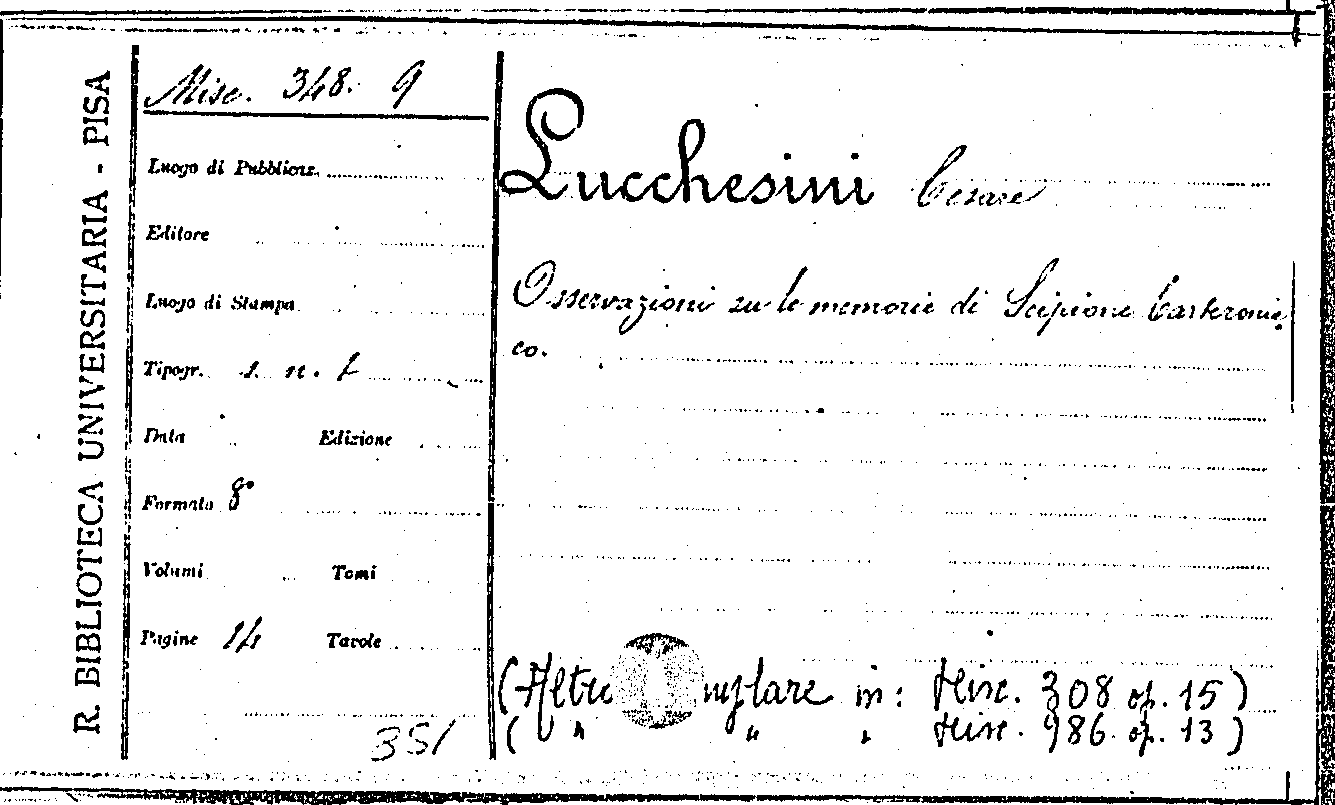 R. BIBLIOTECA UNIVERSITARIA - PISA
Misc. 348. 9
Luogo di Pubblicaz.
Editore
Luogo di Stampa
Tipogr. s. n. t
Data Edizione
Formato 8°
Volumi Tomi
Pagine 14 Tavole
351
Lucchesini Cesare
Osservazioni su le memorie di Scipione Carteromac
co.
(Altro emplare in: Misc. 308 op. 15)
( " " " Misc. 986. op. 13)